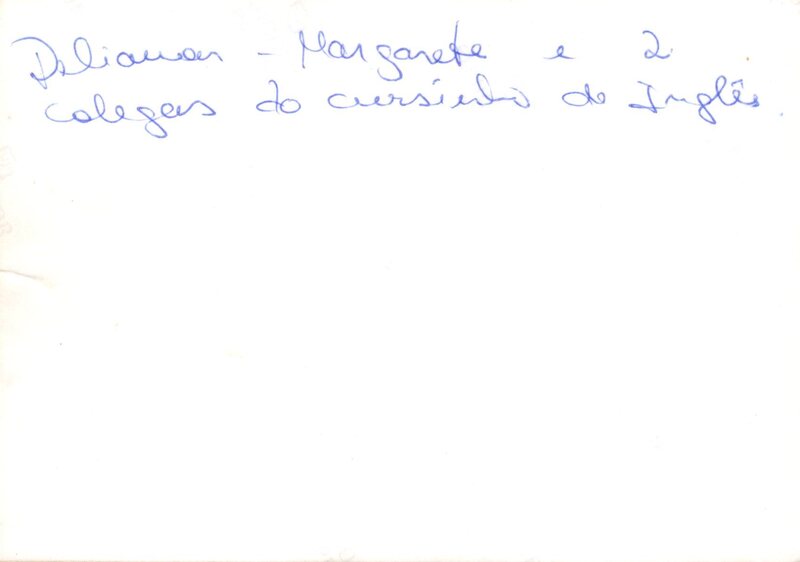 Dilamar - Margarete e 2
colegas do cursinho de Inglês.